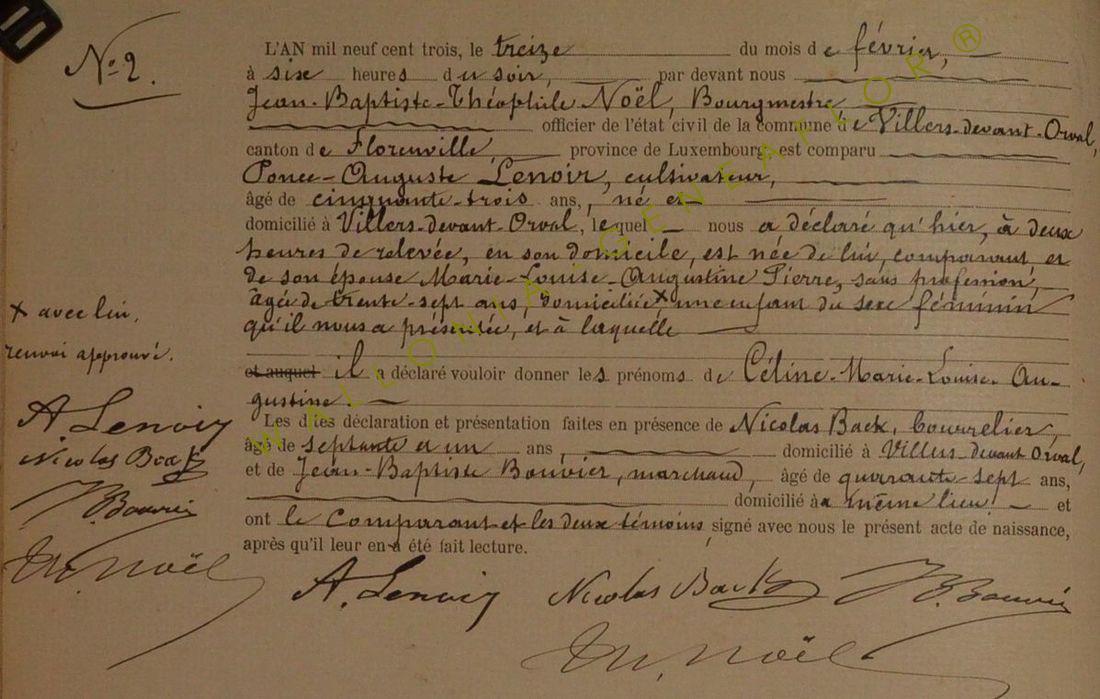 No 2.
L'AN mil neuf cent trois, le treize du mois de février,
à six heures du soir, par devant nous
Jean-Baptiste-Théophile Noël, Bourgmestre,
officier de l'état civil de la commune de Villers-devant-Orval,
canton de Florenville province de Luxembourg, est comparu
Ponce-Auguste Lenoir, cultivateur,
âgé de cinquante-trois ans, né et
domicilié à Villers-devant-Orval, lequel nous a déclaré qu'hier, à deux
heures de relevée, en son domicile, est née de lui, comparant et
de son épouse Marie-Louise-Augustine Pierre, sans profession,
âgée de trente-sept ans, domiciliée x, une enfant du sexe féminin
qu'il nous a présentée, et à laquelle
et auquel il a déclaré vouloir donner les prénoms de Céline-Marie-Louise-Au-
gustine.
Les dites déclaration et présentation faites en présence de Nicolas Back, bourrelier,
âgé de septante et un ans, domicilié à Villers-devant-Orval,
et de Jean-Baptiste Bouvier, marchand, âgé de quarante-sept ans,
domicilié àu même lieu. et
ont le Comparant et les deux témoins, signé avec nous le présent acte de naissance,
après qu'il leur en a été fait lecture.
x avec lui,
renvoi approuvé.
A. Lenoir
Nicolas Back
JB. Bouvier
Th. Noël
A. Lenoir Nicolas Back JB. Bouvier
Th. Noël
WALLONIA GENEAFLOR ®